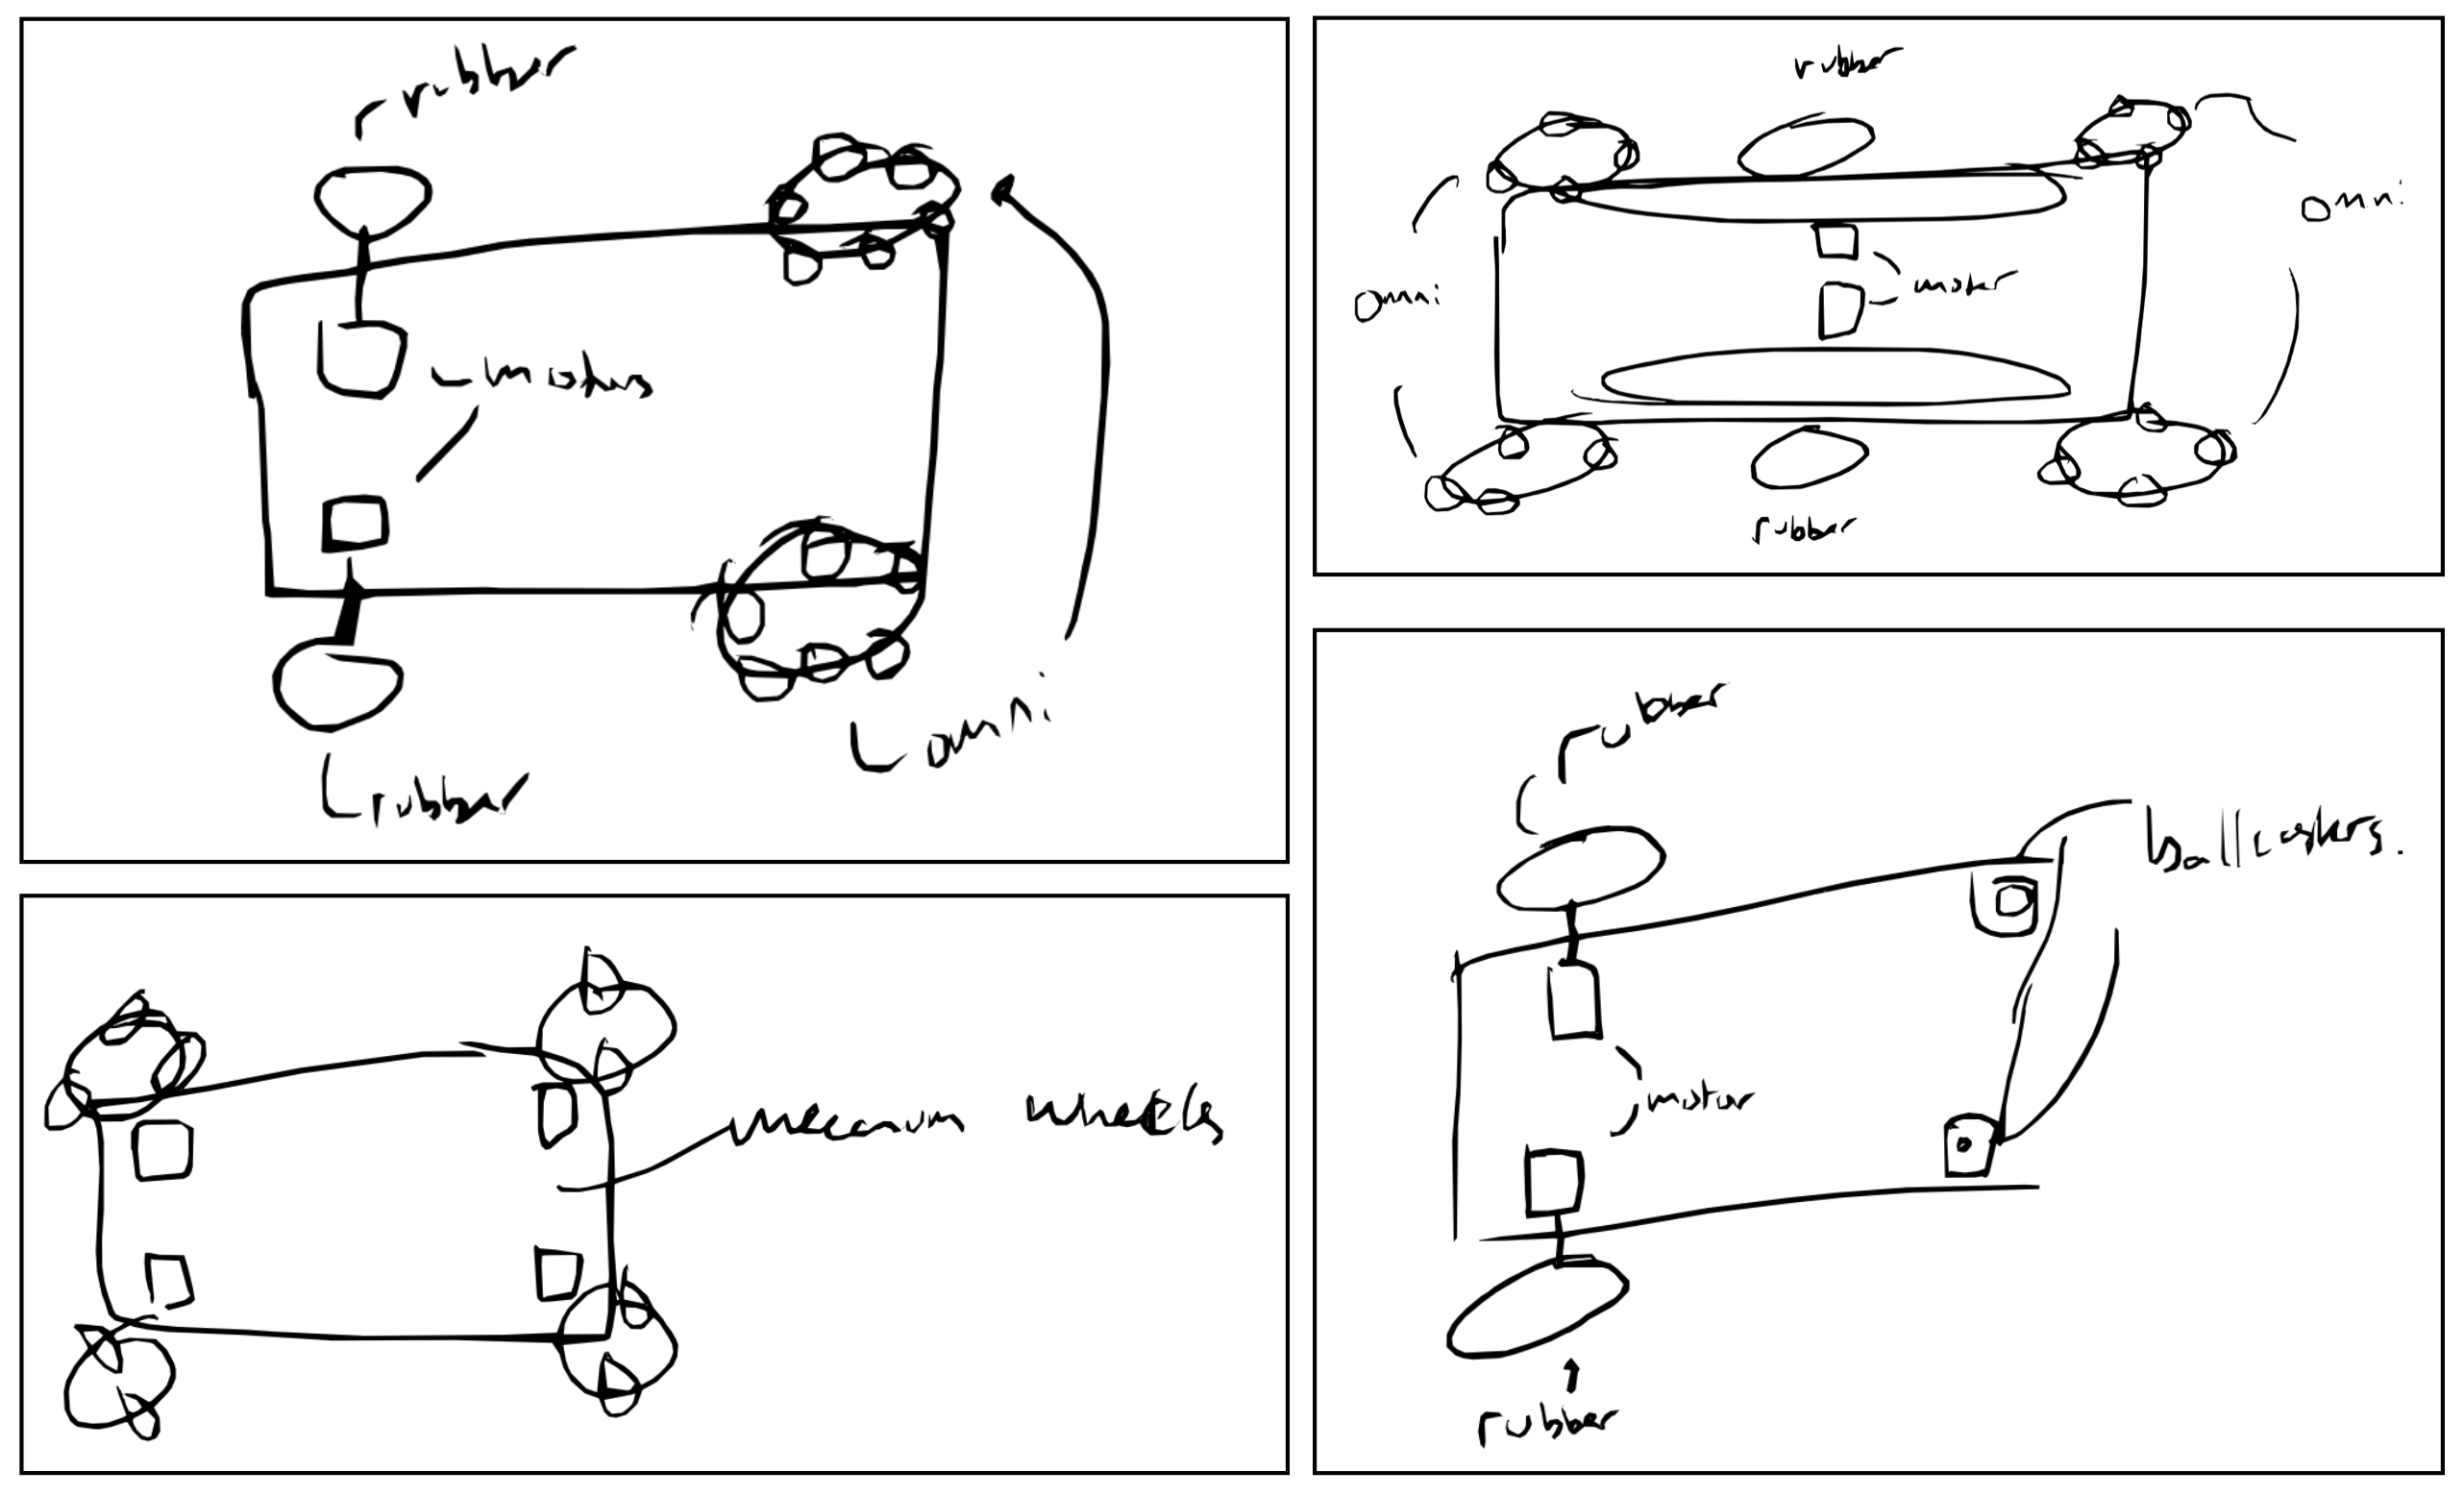 rubber
motors
rubber
omni
rubber
omni
motor
omni
rubber
mecanum wheels
rubber
ball casters.
motor
rubber